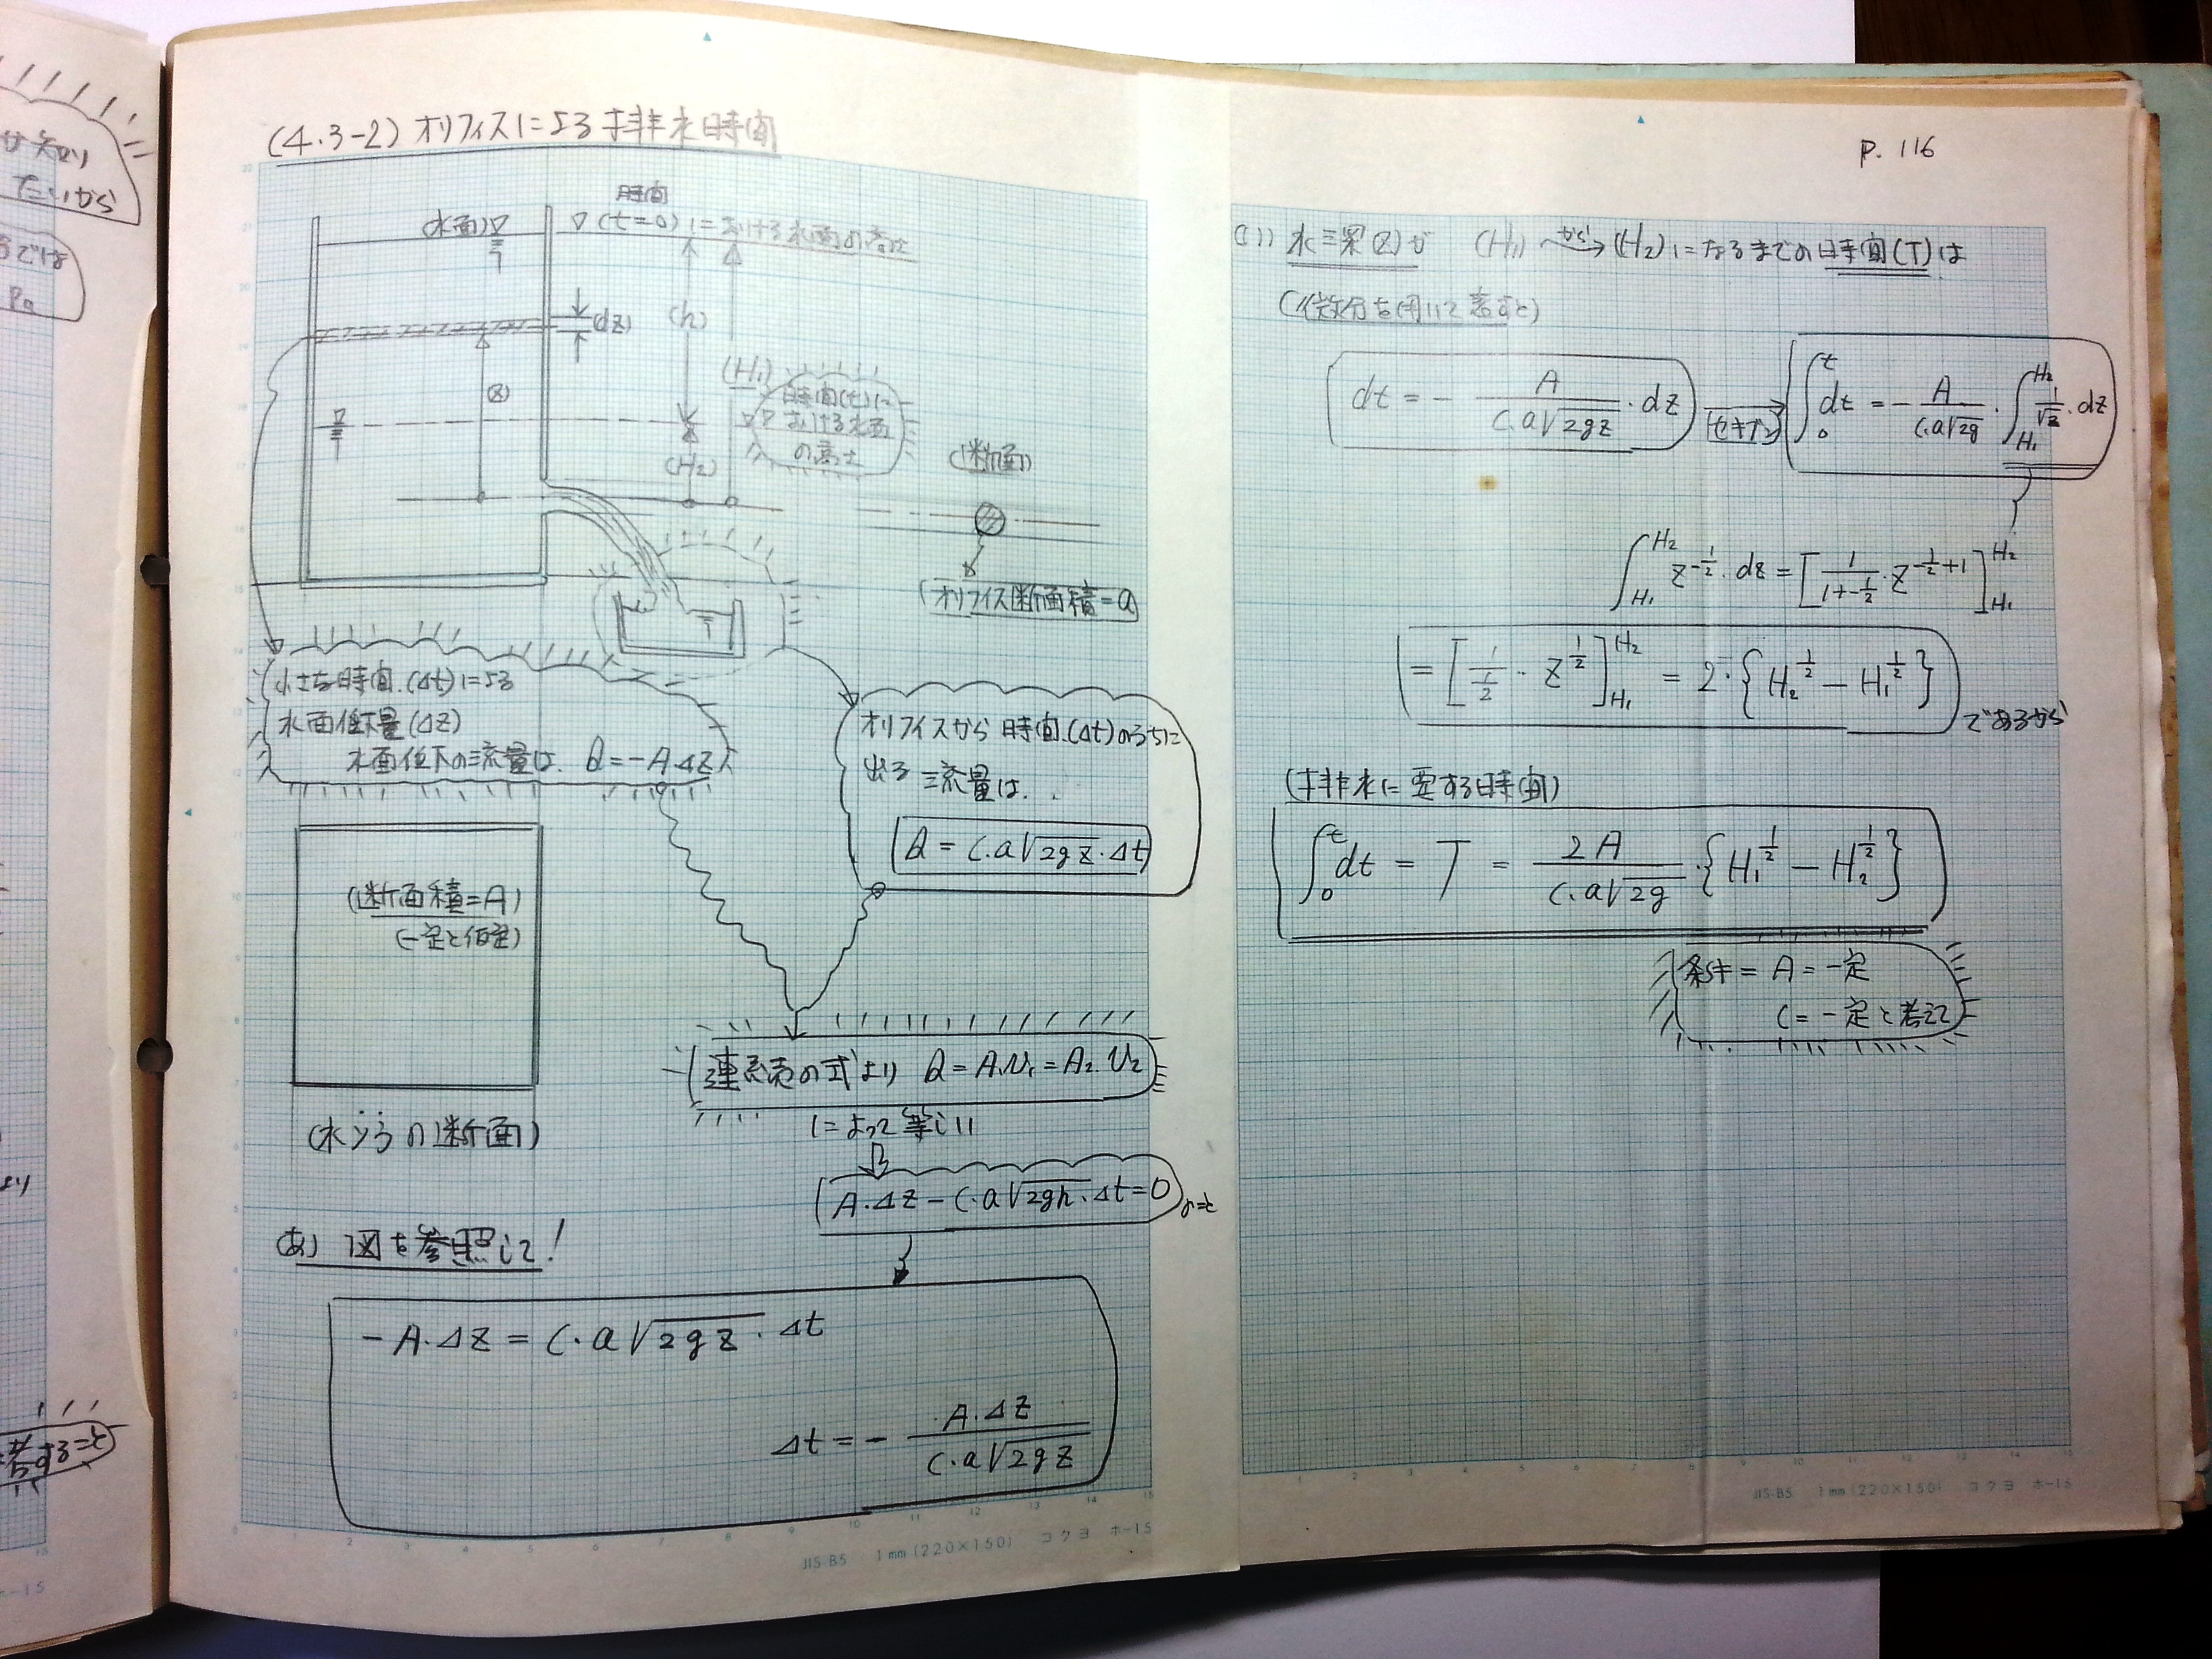 サ知り
たいから
では
Pa
より
考すること
(4.3-2) オリフィスによる排水時間
時間
(水面)▽
▽(t=0)における水面の高さ
(dz)
(h)
(z)
(H₁)
時間(t)に
おける水面
の高さ
(H₂)
(断面)
(オリフィス断面積=a)
小さな時間.(Δt)による
水面低下量(Δz)
水面低下の流量は. Q=-A.Δz
オリフィスから時間.(Δt)のうちに
出る流量は..
Q = C.a√2gz.Δt
(断面積=A)
(一定と仮定)
(水そうの断面)
連続の式より Q=A₁v₁=A₂.v₂
によって等しい
A.Δz-C.a√2gh.Δt=0
(あ) 図を参照して!
-A.Δz = C.a√2gz.Δt
Δt = - A.Δz / C.a√2gz
JIS-B5 1mm(220×150) コクヨ ホ-15
P. 116
(1) 水深(z)が (H₁) から→ (H₂)になるまでの時間(T)は
(微分を用いて表すと)
dt = - A / C.a√2gz ・dz
セキブン
∫₀ᵗ dt = - A / C.a√2g ・∫_{H₁}^{H₂} 1/√z ・dz
∫_{H₁}^{H₂} z^{-1/2}・dz = [1/(1+-1/2)・z^{-1/2+1}]_{H₁}^{H₂}
= [1/(1/2)・z^{1/2}]_{H₁}^{H₂} = 2・{H₂^{1/2} - H₁^{1/2}}
であるから
(排水に要する時間)
∫₀ᵗ dt = T = 2A / C.a√2g ・{H₁^{1/2} - H₂^{1/2}}
条件= A=一定
C=一定と考えて
JIS-B5 1mm(220×150) コクヨ ホ-15